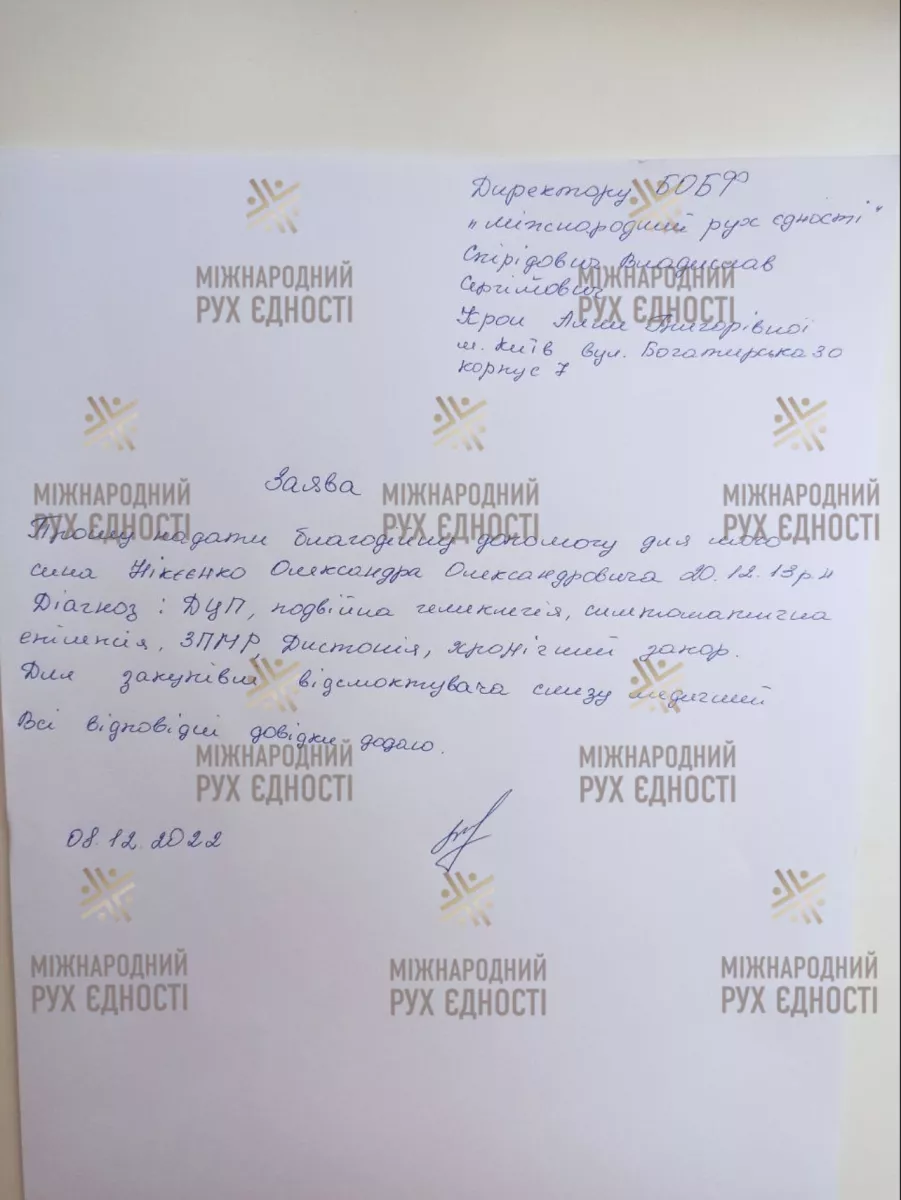 Директору БОБФ
"Міжнародний рух єдності"
Спірідович Владислав
Сергійович
Крои Алли Григорівної
м. Київ вул. Богатирська 30
корпус 7
Заява
Прошу надати благодійну допомогу для мого
сина Нікєєнко Олександра Олександровича 20.12.13р.н
Діагноз: ДЦП, подвійна гемиклегія, симптоматична
епілепсія, ЗПМР, Дистонія, хронічний запор.
Для закупівлі відсмоктувача слизу медичний
Всі відповідні довідки додаю.
08.12.2022
МІЖНАРОДНИЙ
РУХ ЄДНОСТІ
МІЖНАРОДНИЙ
РУХ ЄДНОСТІ
МІЖНАРОДНИЙ
РУХ ЄДНОСТІ
МІЖНАРОДНИЙ
РУХ ЄДНОСТІ
МІЖНАРОДНИЙ
РУХ ЄДНОСТІ
МІЖНАРОДНИЙ
РУХ ЄДНОСТІ
МІЖНАРОДНИЙ
РУХ ЄДНОСТІ
МІЖНАРОДНИЙ
РУХ ЄДНОСТІ
МІЖНАРОДНИЙ
РУХ ЄДНОСТІ
МІЖНАРОДНИЙ
РУХ ЄДНОСТІ